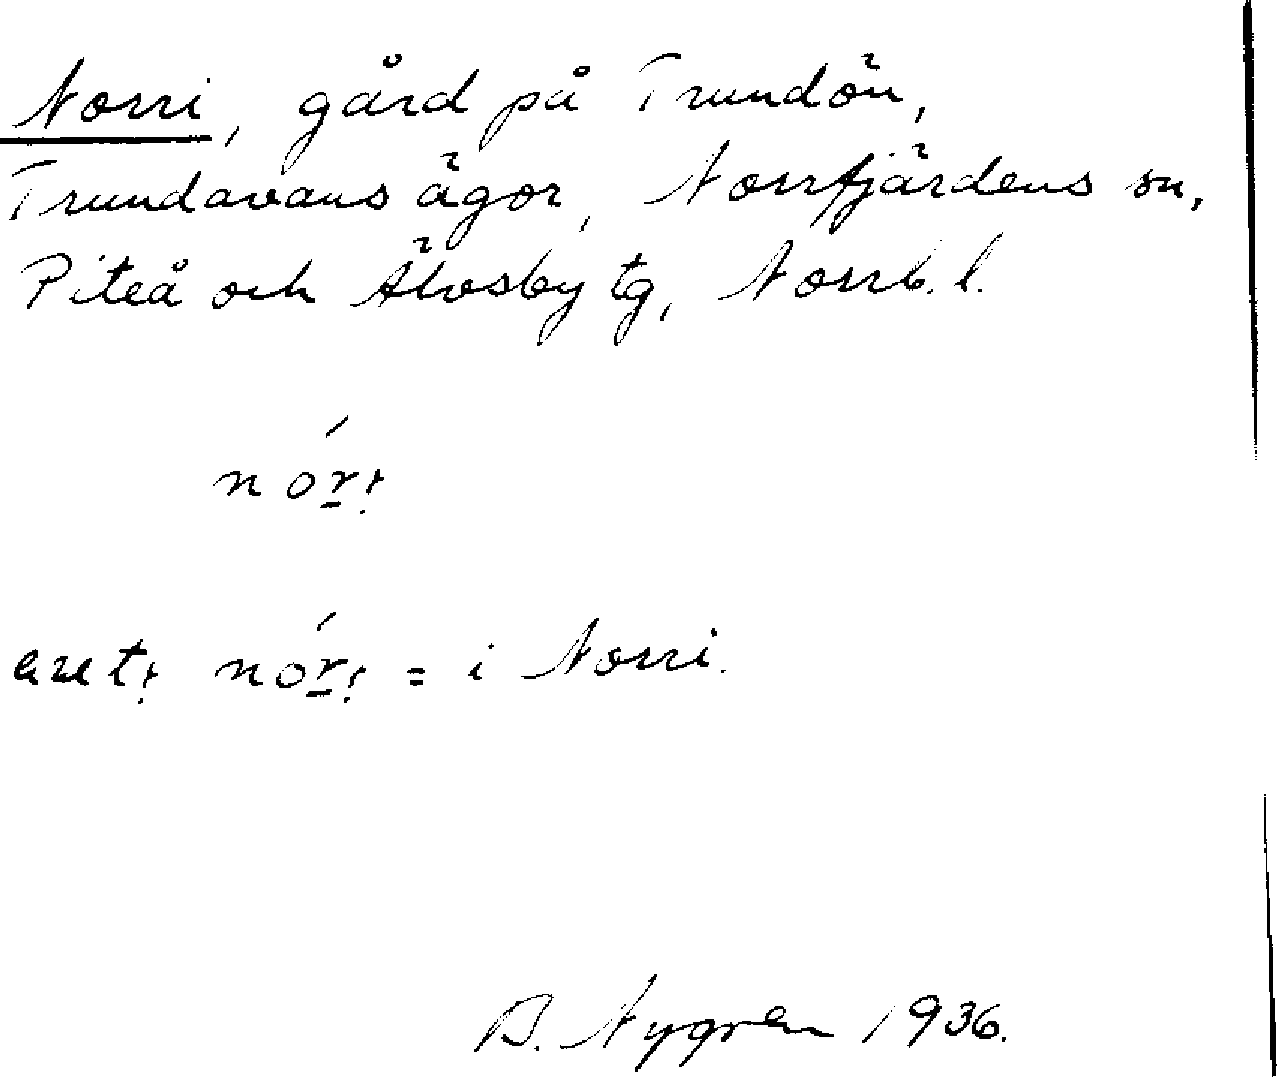 Norri, gård på Trundön,
Trundavans ägor, Norrfjärdens sn,
Piteå och Älvsby tg, Norrb. l.
nór̲ı
nór̲ı = i Norri.
B. Nygren 1936.